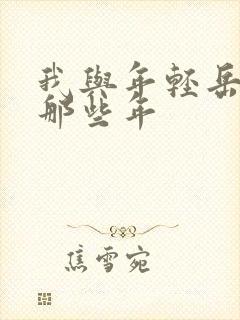 我與年輕岳
那些年
焦雪宛